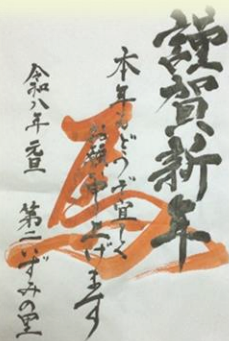 謹賀新年
本年もどうぞ宜しく
お願い申し上げます
令和八年 元旦
第二いずみの里
馬